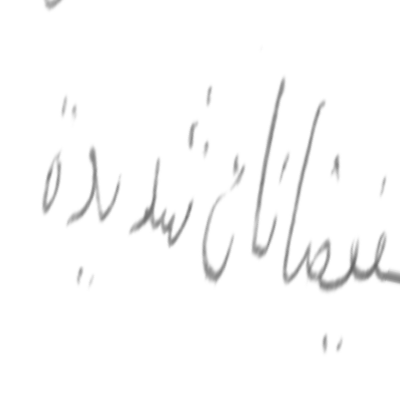 فيضانات شديدة